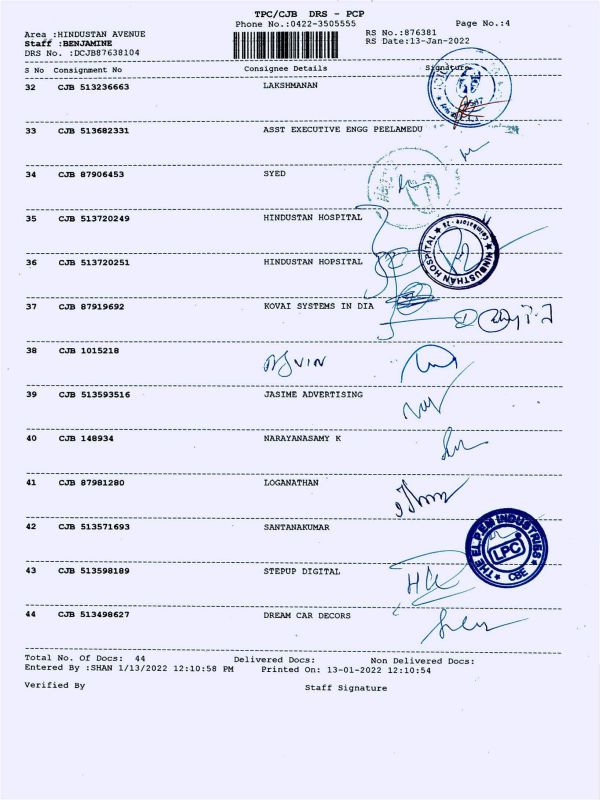 TPC/CJB DRS - PCP
Phone No.:0422-3505555 Page No.:4
Area :HINDUSTAN AVENUE RS No.:876381
Staff :BENJAMINE RS Date:13-Jan-2022
DRS No. :DCJB87638104
S No Consignment No Consignee Details Signature
32 CJB 513236663 LAKSHMANAN
33 CJB 513682331 ASST EXECUTIVE ENGG PEELAMEDU
34 CJB 87906453 SYED
35 CJB 513720249 HINDUSTAN HOSPITAL
HINDUSTHAN HOSPITAL
Coimbatore - 28
36 CJB 513720251 HINDUSTAN HOPSITAL
37 CJB 87919692 KOVAI SYSTEMS IN DIA
38 CJB 1015218
39 CJB 513593516 JASIME ADVERTISING
40 CJB 148934 NARAYANASAMY K
41 CJB 87981280 LOGANATHAN
42 CJB 513571693 SANTANAKUMAR
THE EL.P.EM INDUSTRIES
LPC
CBE
43 CJB 513598189 STEPUP DIGITAL
44 CJB 513498627 DREAM CAR DECORS
Total No. Of Docs: 44 Delivered Docs: Non Delivered Docs:
Entered By :SHAN 1/13/2022 12:10:58 PM Printed On: 13-01-2022 12:10:54
Verified By Staff Signature